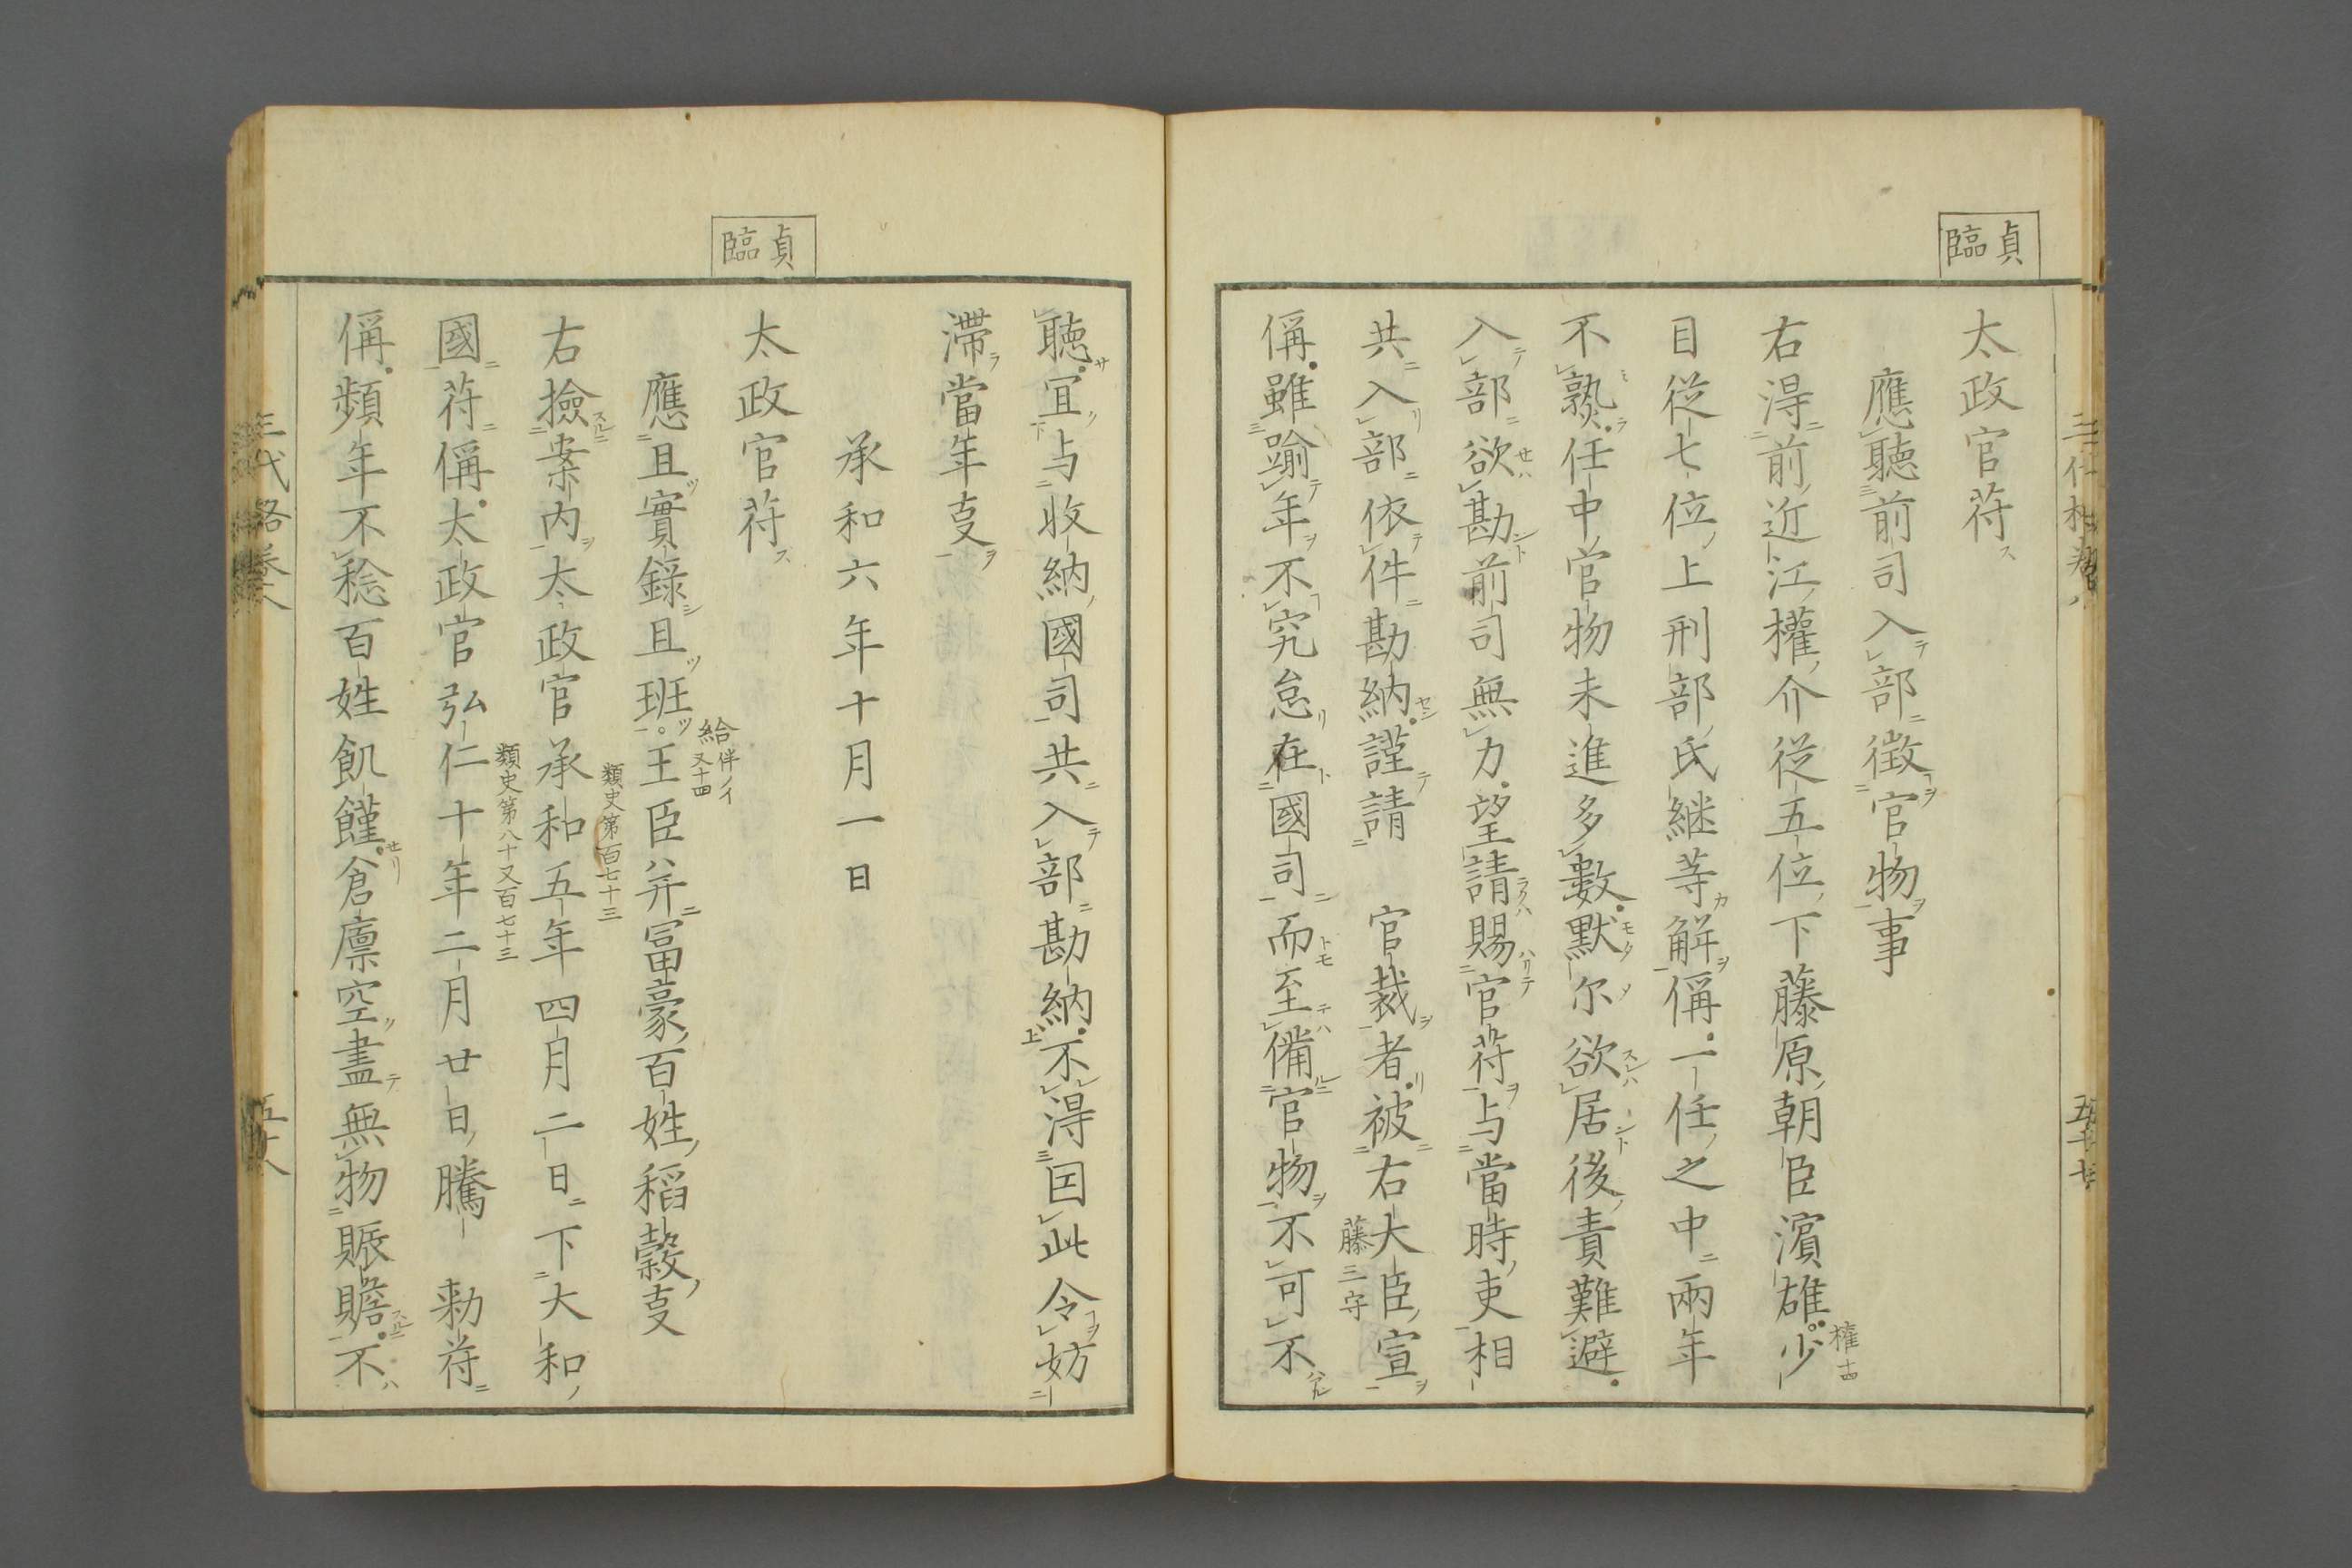 臨貞
太政官苻ス
應聽前司入部徴官物事
右得前近江權介從五位下藤原朝臣濱雄少
權十四
目從七位上刑部氏継等解偁一任之中兩年
不熟任中官物未進多數默尔欲居後責難避
入部欲勘前司無力望請賜官苻与當時吏相
共入部依件勘納謹請　官裁者被右大臣宣
藤三守
偁雖踰年不究怠在國司而至備官物不可不
聴宜与收納國司共入部勘納不得因此令妨
滯當年㕝
承和六年十月一日
臨貞
太政官苻ス
應且實錄且班王臣幷冨豪百姓稻糓㕝
給伴ノイ
又十四
右撿案内太政官承和五年四月二日下大和
類史第百七十三
國苻偁太政官弘仁十年二月廿日騰　勅苻
類史第八十又百七十三
偁頻年不稔百姓飢饉倉廪空盡無物賑贍不